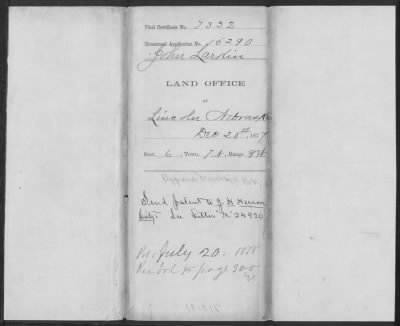 Final Certificate No. 7332
Homestead Application No. 16290
John Larkin
LAND OFFICE
at
Lincoln Nebraska
Dec 20th, 187
Sect. 6, Town. 7 N., Range 8 W
Send patent to J H
See Letter No 24920
July 20. 1878
Rec vol 15 page 300